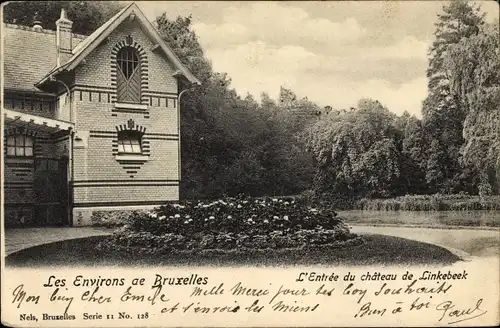 Les Environs de Bruxelles
L'Entrée du château de Linkebeek
Mon Cher Emile Mille Merci pour tes souhaits
et t'envoie les miens Bien à toi Paul
Nels, Bruxelles Serie 11 No. 128